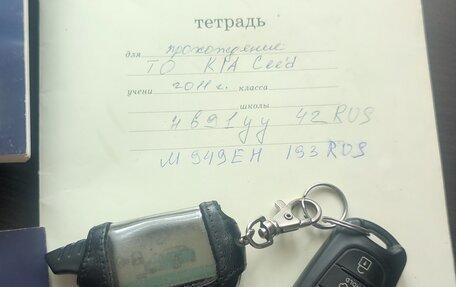 тетрадь
для прохождение
ТО KIA Cee'd
учени 2011 г. класса
школы
НВ 91 УУ 42 RUS
М 949 ЕН 193 RUS